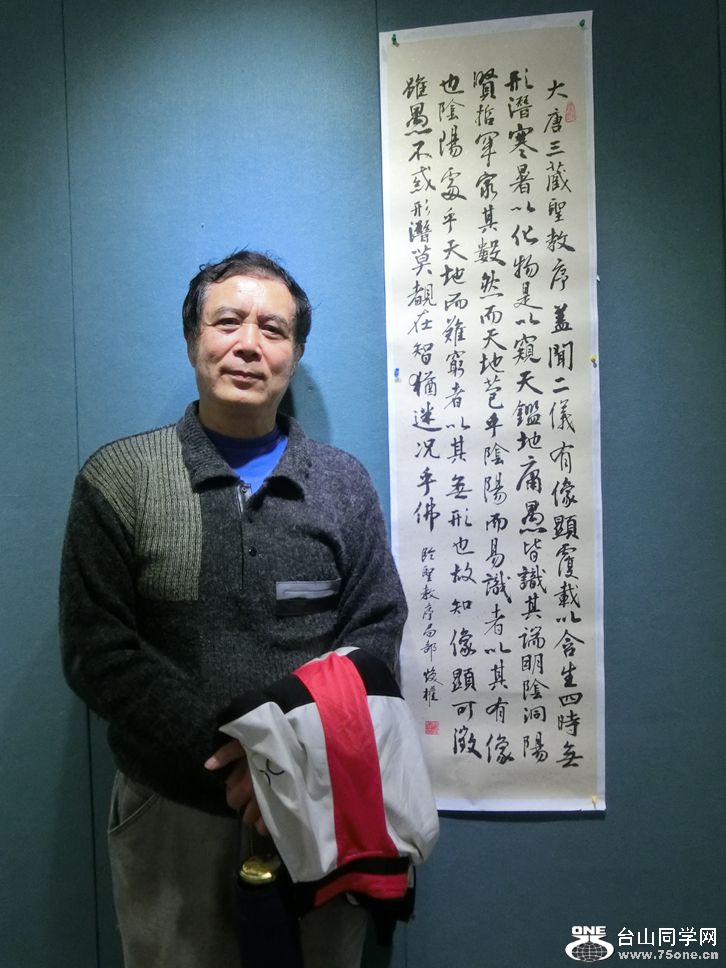 大唐三藏聖教序蓋聞二儀有像顯覆載以含生四時無
形潛寒暑以化物是以窺天鑑地庸愚皆識其端明陰洞陽
賢哲罕窮其數然而天地苞乎陰陽而易識者以其有像
也陰陽處乎天地而難窮者以其無形也故知像顯可徵
雖愚不惑形潛莫覩在智猶迷况乎佛
臨聖教序局部
ONE
台山同学网
www.75one.cn